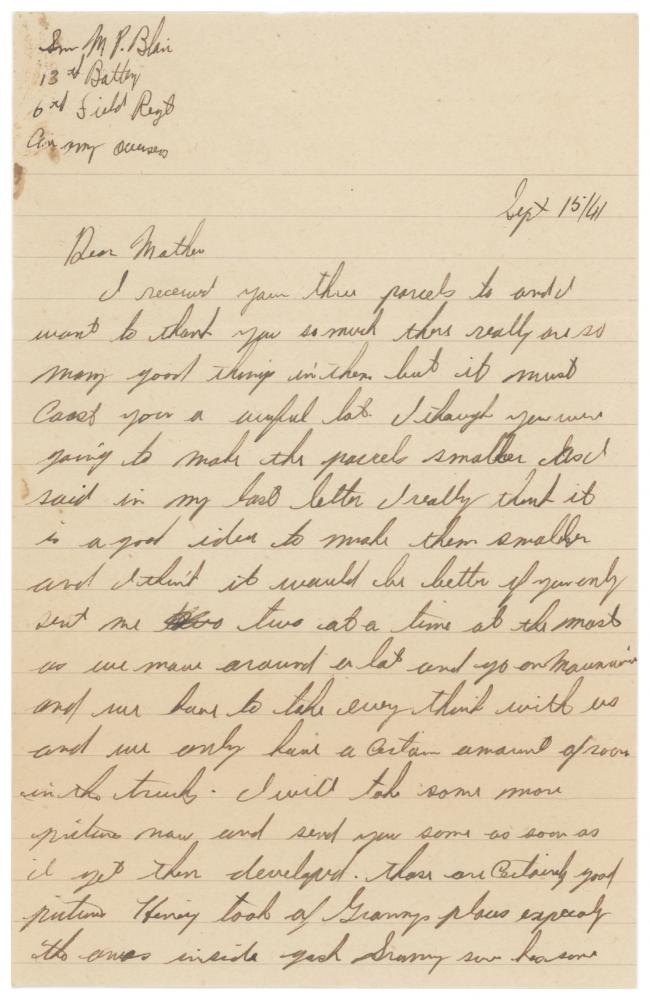 Gnr M. P. Blair
13th Battery
6th Field Regt
Can Army Overseas
Sept 15/41
Dear Mother
I received your three parcels to and I
want to thank you so much there really are so
many good things in them but it must
Coast your a awful lot. I though you were
going to make the parcels smaller As I
said in my last letter I really think it
is a good idea to make them smaller
and I think it would be better if you only
sent me two at a time at the most
as we move around a lot and go on
and we have to take every think with us
and we only have a certain amount of room
in the trucks. I will take some more
picture now and send you some as soon as
I get them developed. those are Certainly good
picture Henry took of Grannys place
the ones inside gosh Granny sure has some